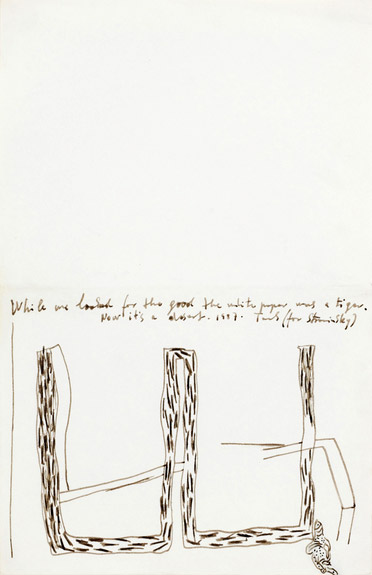 While we looked for the good the white paper was a tiger.
Now it's a desert. 1997. (for Stravinsky)